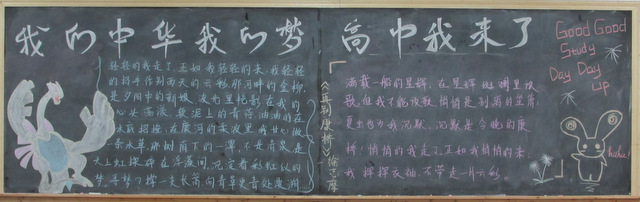 我们中华我们的梦
高中我来了
Good Good
Study
Day Day
up
轻轻的我走了,正如我轻轻的来,我轻轻
的招手作别西天的云彩,那河畔的金柳,
是夕阳中的新娘,波光里的艳影,在我的
心头荡漾。软泥上的青荇油油的在
水底招摇,在康河的柔波里我甘心做
一条水草,那树荫下的一潭,不是清泉是
天上虹揉碎在浮藻间,沉淀着彩虹似的
梦。寻梦?撑一支长篙向青草更青处漫溯
《再别康桥》徐志摩
满载一船的星辉,在星辉斑斓里放
歌,但我不能放歌,悄悄是别离的笙箫
夏虫也为我沉默,沉默是今晚的康
桥!悄悄的我走了,正如我悄悄的来;
我挥挥衣袖,不带走一片云彩
haha!